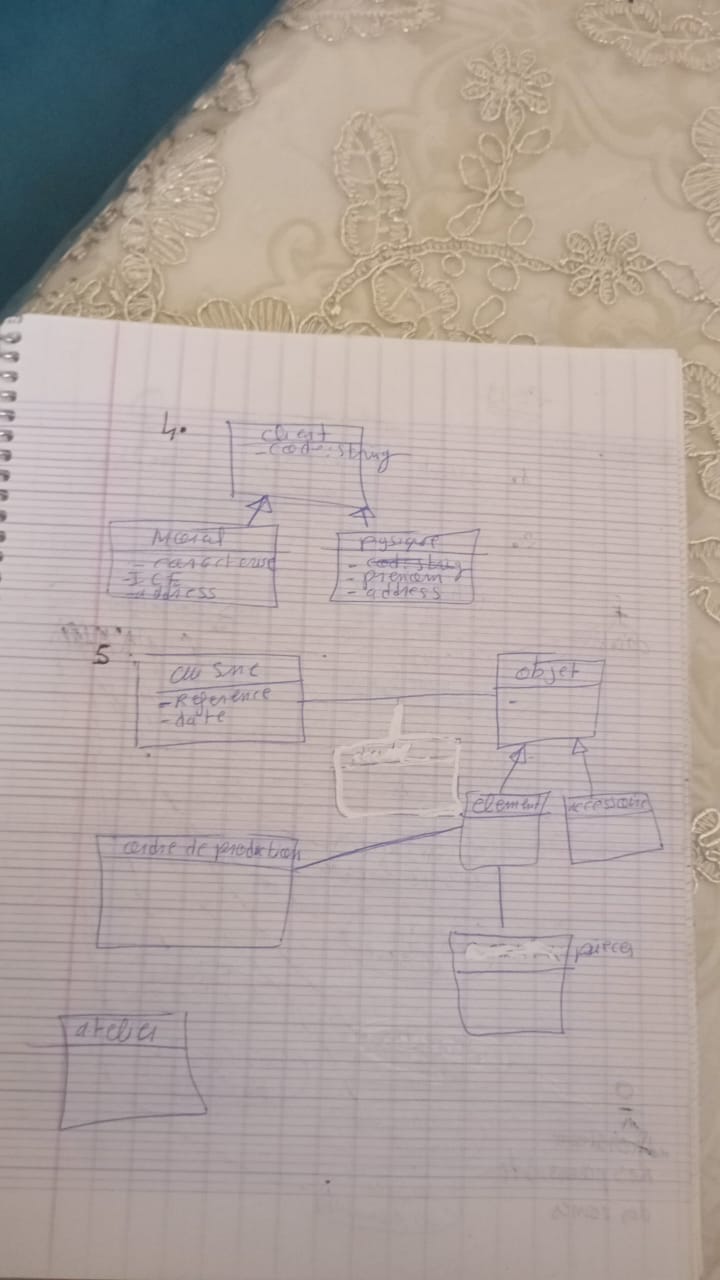 4.
client
- code: string
Moral
- ICE
- address
physique
- prenom
- address
5
cuisine
- Reference
- date
objet
-
element
accessoire
ordre de production
pieces
atelier